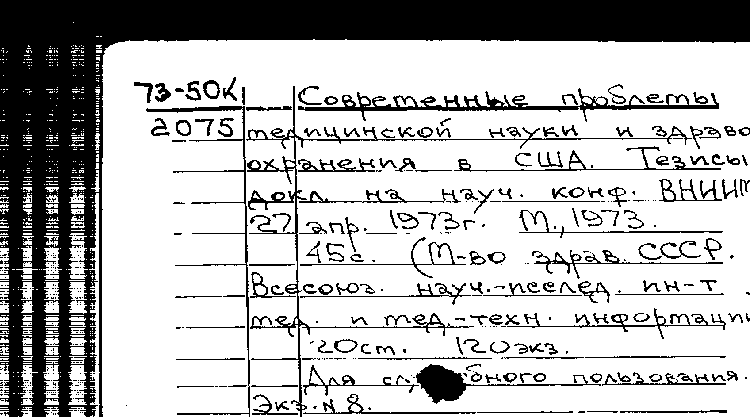 73-50К Современные проблемы
2075 медицинской науки и здраво
охранения в США. Тезисы
докл. на науч. конф. ВНИИМ
27 апр. 1973г. М., 1973.
45с. (М-во здрав. СССР.
Всесоюз. науч.-исслед. ин-т
мед. и мед.-техн. информации
20см. 120экз.
Для пользования.
Экз. N 8.